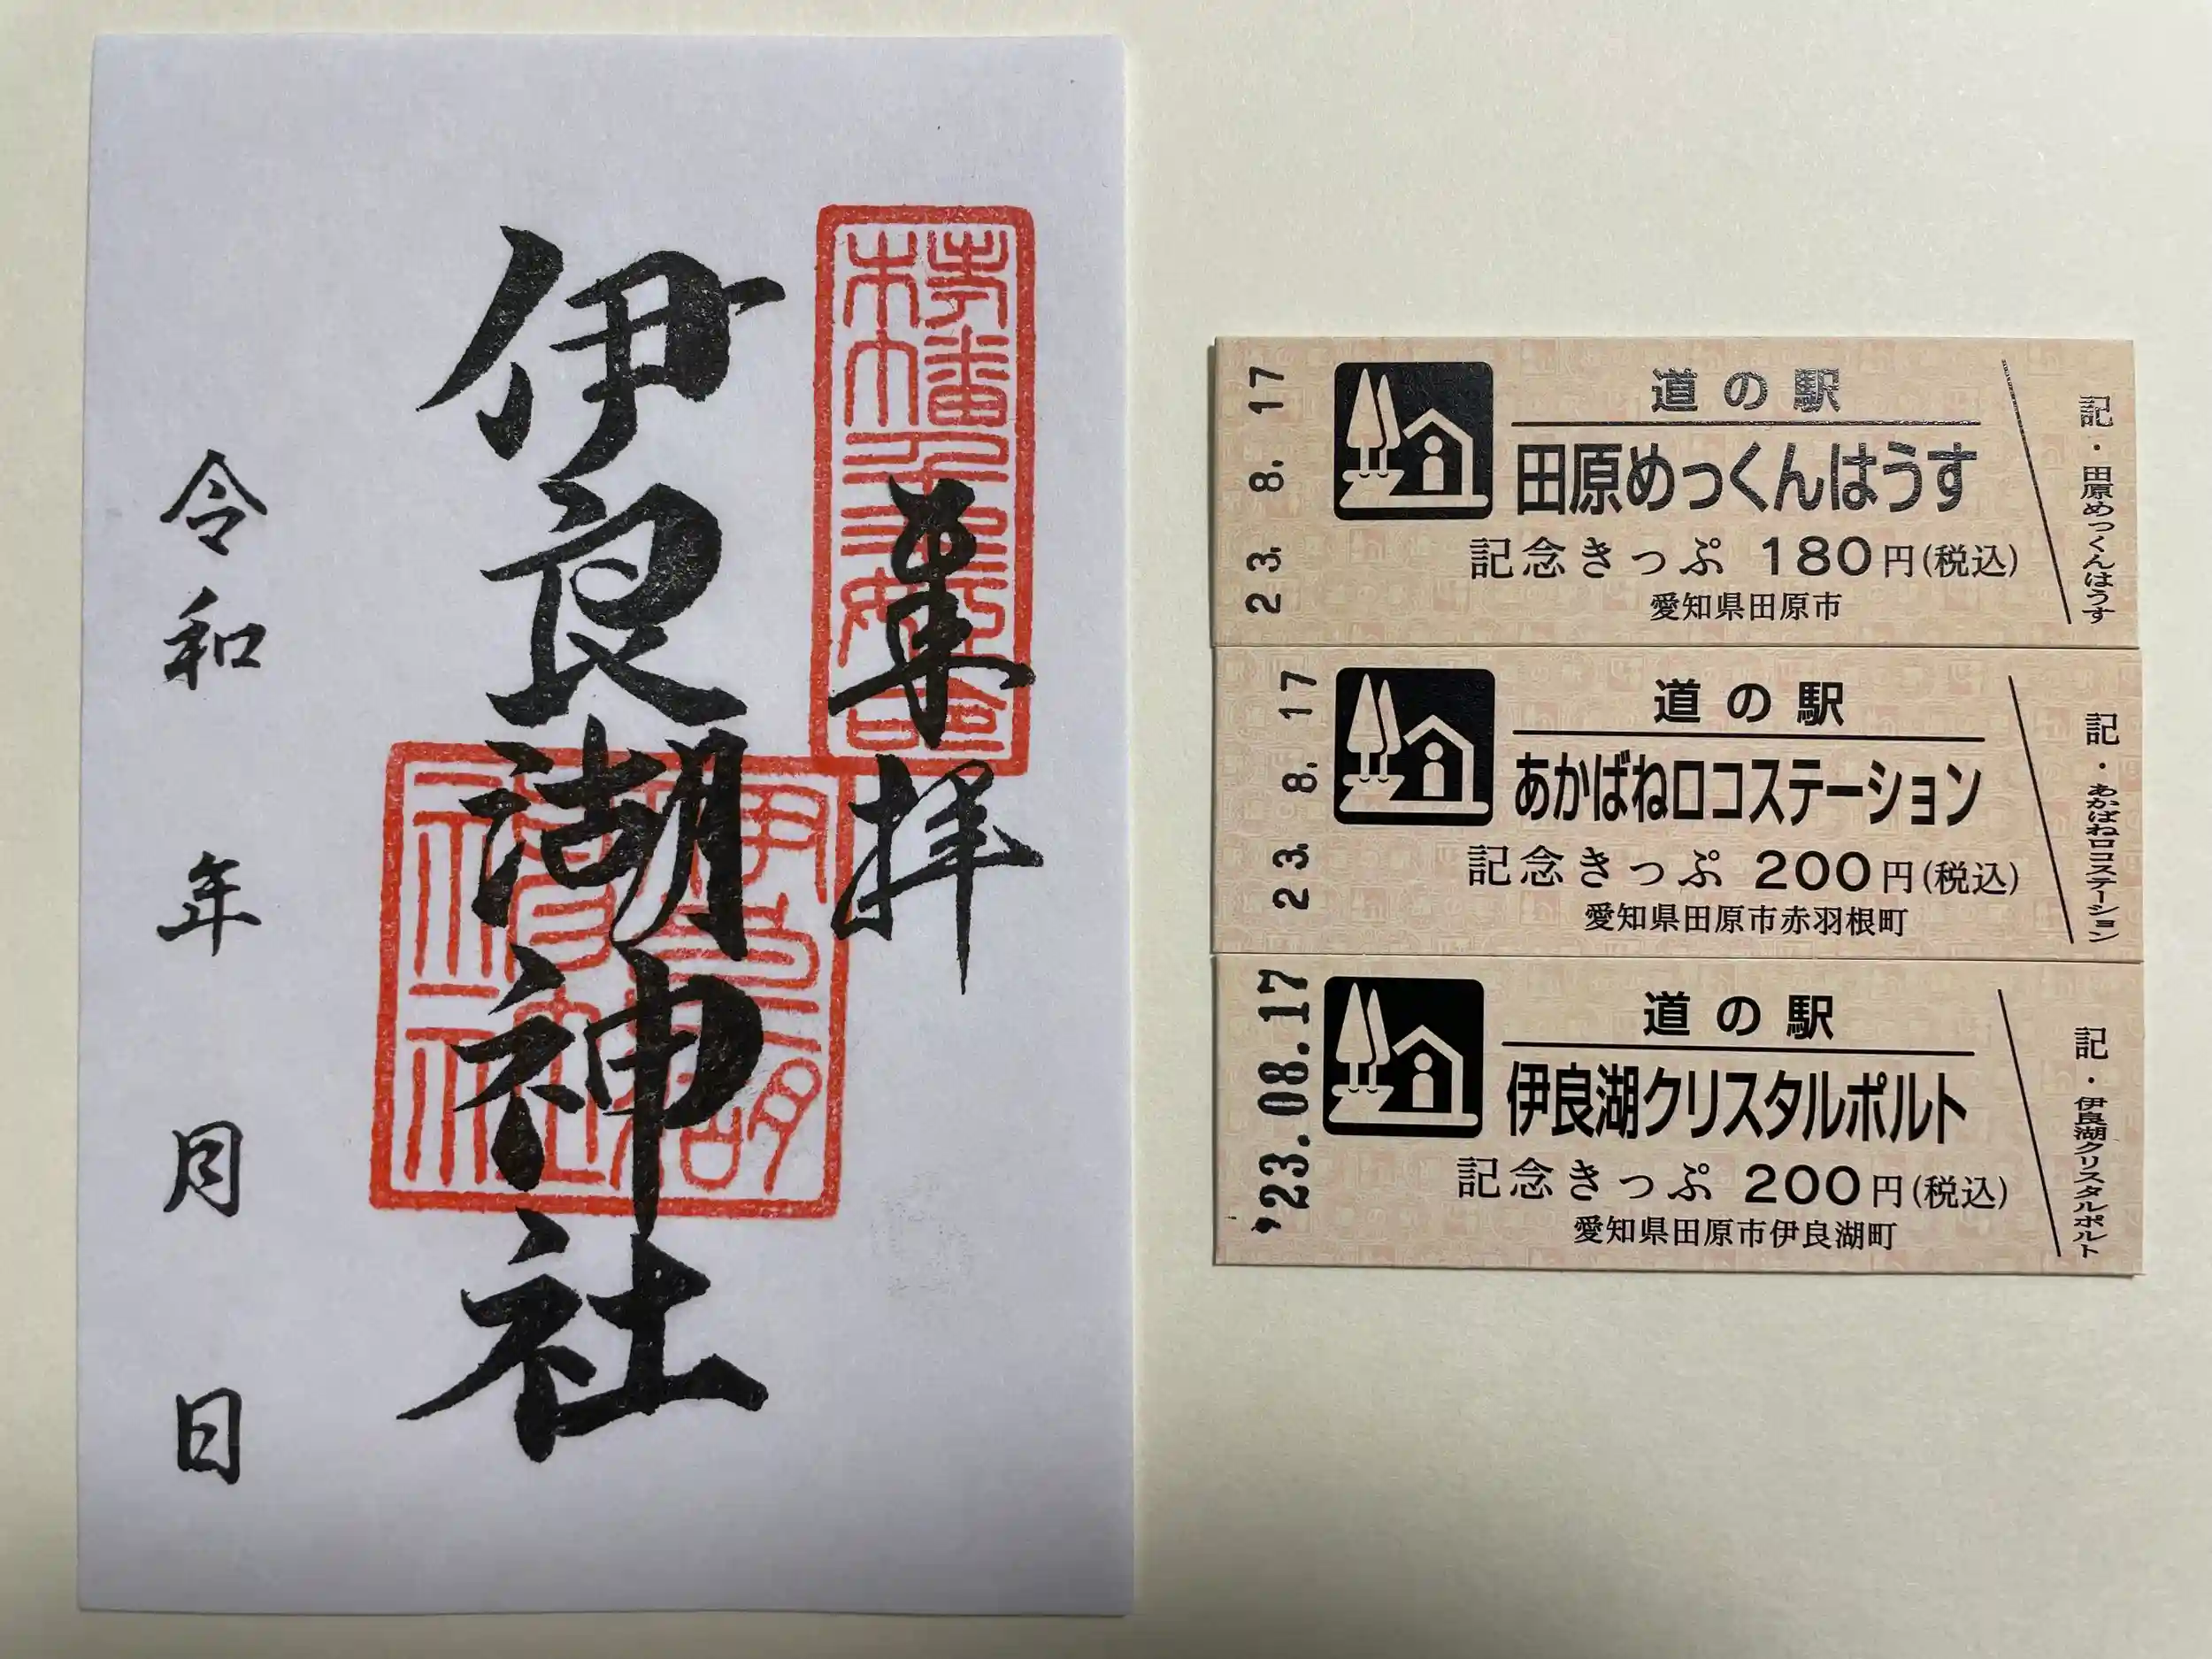 奉拝
伊良湖神社
令和 年 月 日
23. 8. 17
道の駅
田原めっくんはうす
記念きっぷ 180円(税込)
愛知県田原市
記・田原めっくんはうす
23. 8. 17
道の駅
あかばねロコステーション
記念きっぷ 200円(税込)
愛知県田原市赤羽根町
記・あかばねロコステーション
'23.08.17
道の駅
伊良湖クリスタルポルト
記念きっぷ 200円(税込)
愛知県田原市伊良湖町
記・伊良湖クリスタルポルト